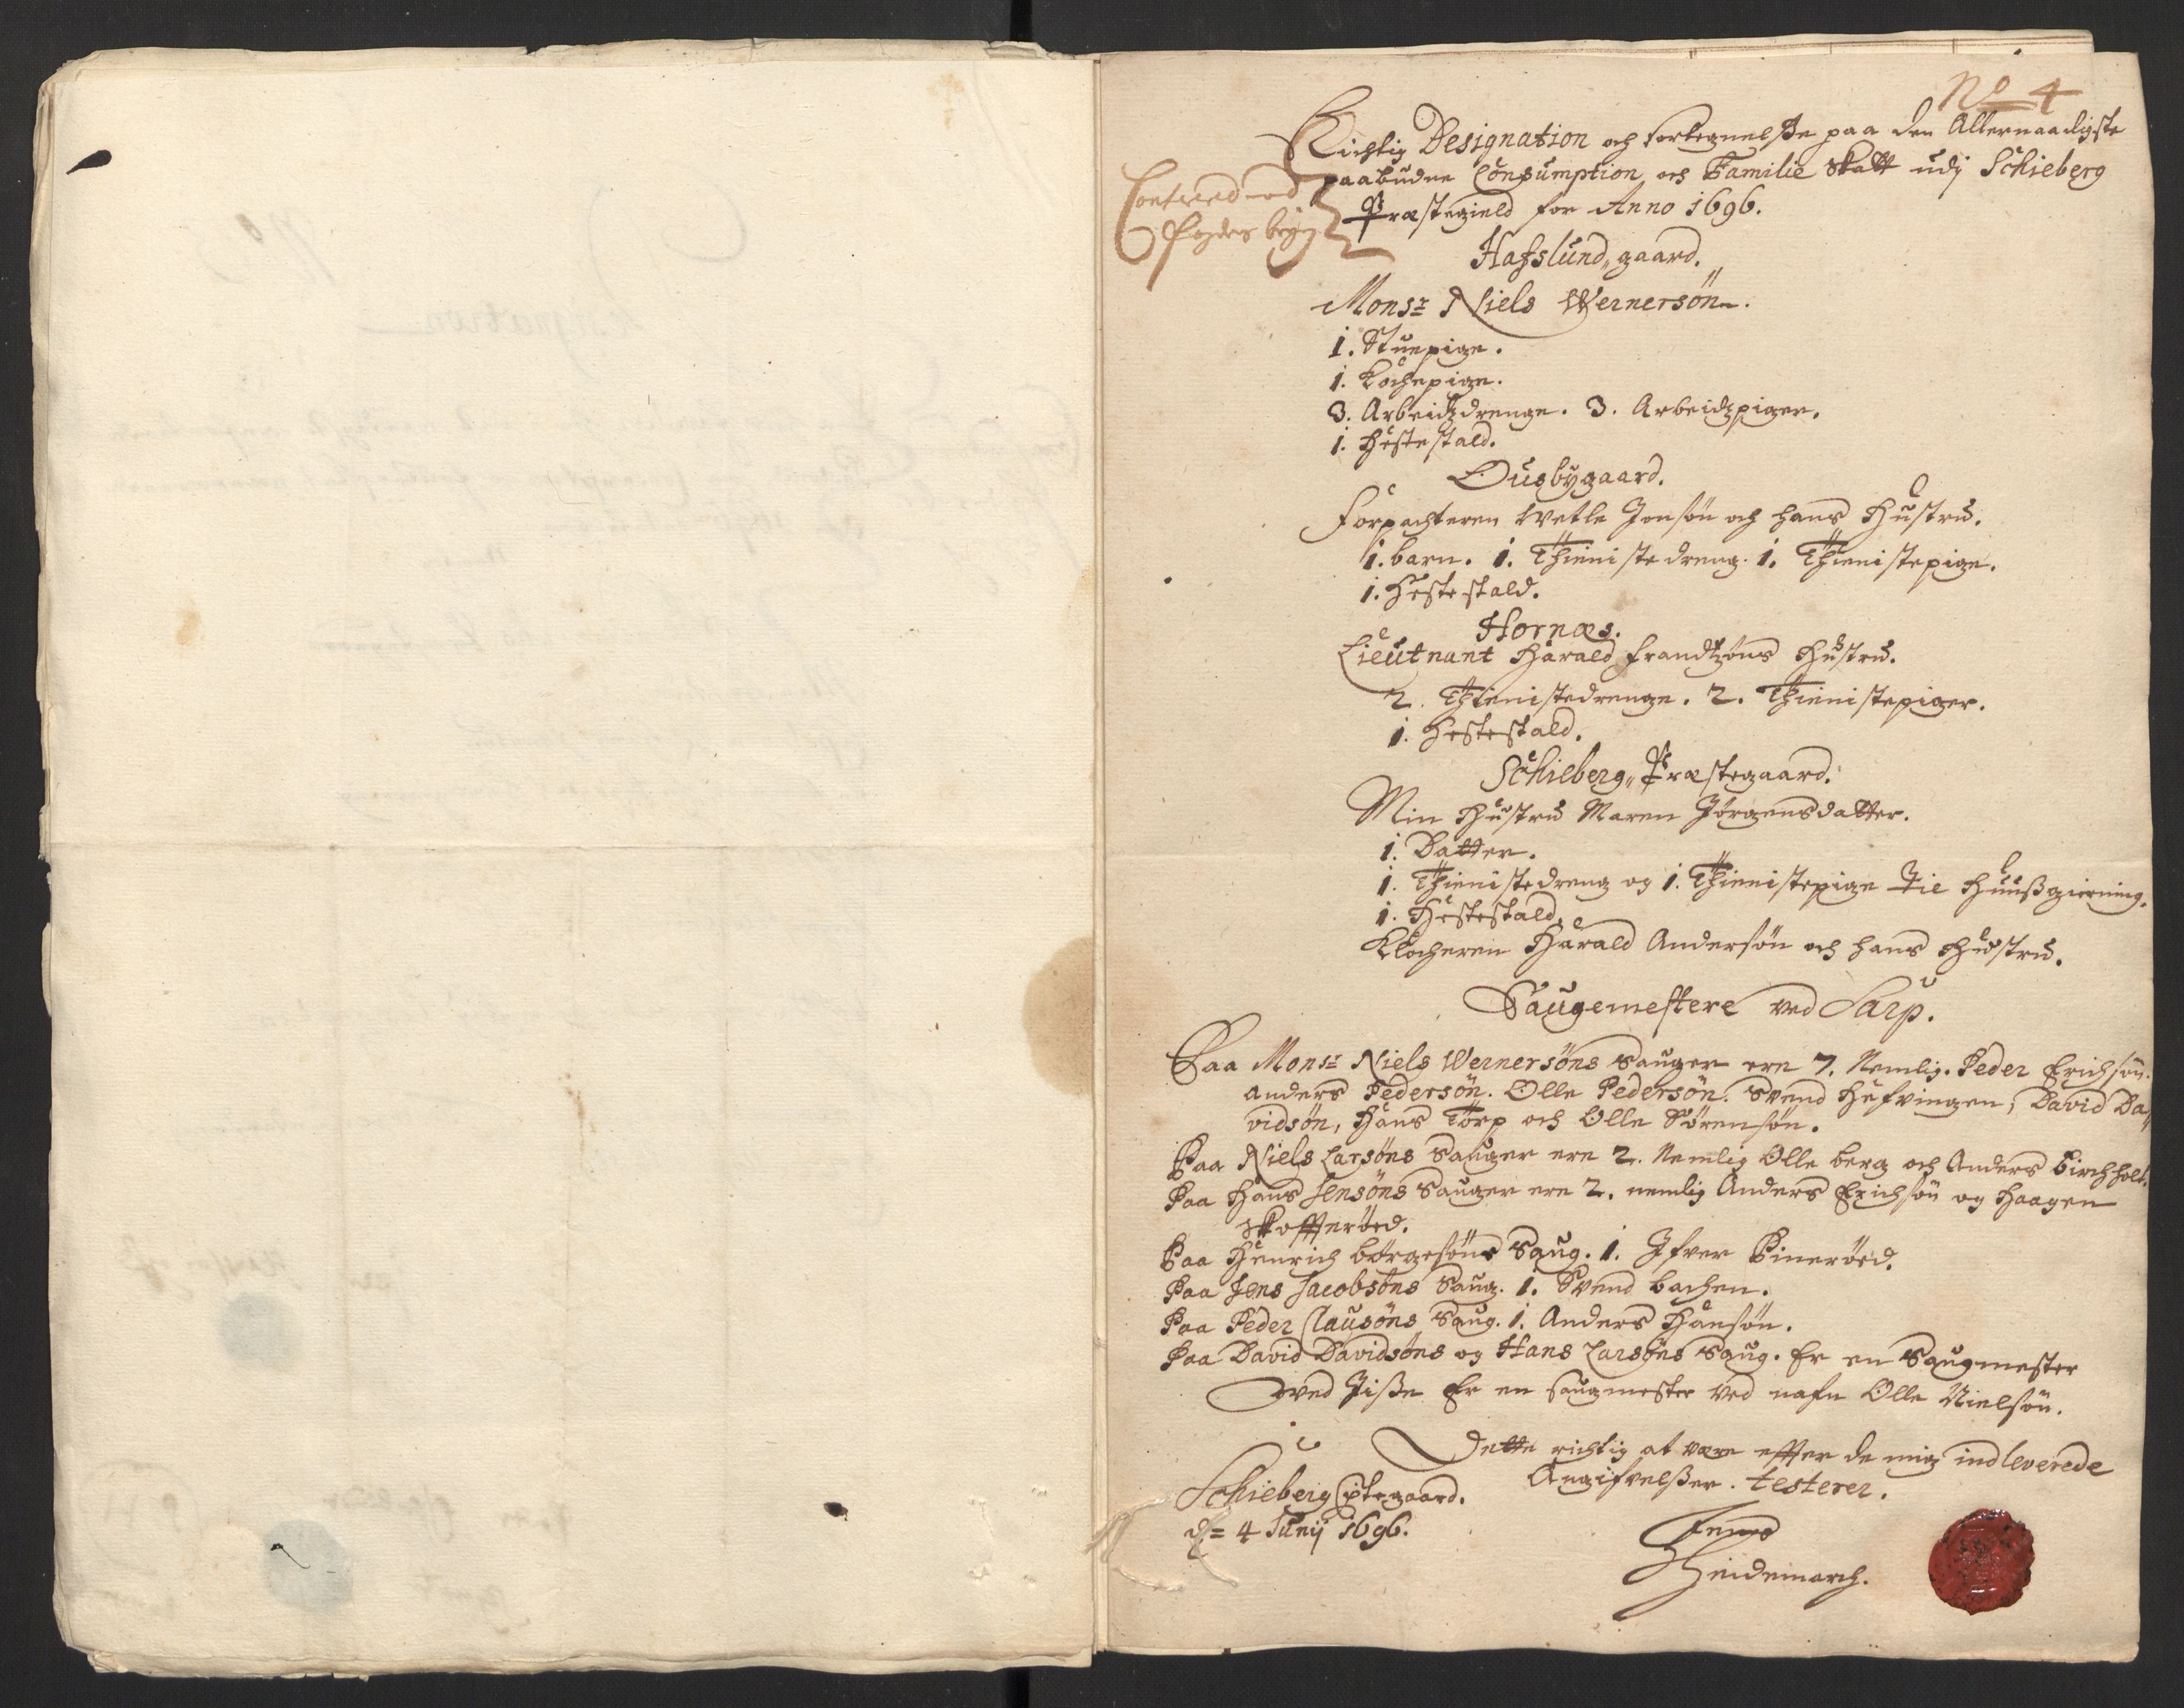 No 4
Richtig Designation och fortegnelsse paa den Allernaadigste
paabudne Consumption och Familie Skatt udj Schieberg
Præstegield for Anno 1696.
Hafslund gaard.
Monsr Niels Wernersøn.
1. Stuepige.
1. Kochepige.
3. Arbeidzdrenge. 3. Arbeidzpiger.
1. Hestestald.
Ousbygaard.
Forpachteren Wetle Jonsøn och hans Hustru.
1. barn. 1. Thienistedreng. 1. Thienistepige.
1. Hestestald.
Hornæs.
Lieutnant Harald Frandtzøns Hustru.
2. Thienistedrenge. 2. Thienistepiger.
1. Hestestald.
Schieberg Præstegaard.
Min Hustru Maren Jørgensdatter.
1. Datter.
1. Thienistedreng og 1. Thienistepige Til Huußgierning.
1. Hestestald.
Klocheren Harald Andersøn och hans Hustru.
Saugemestere ved Sarp.
Paa Monsr Niels Wernersøns Sauger ere 7. Nemlig. Peder Erichsøn.
Anders Pedersøn. Olle Pedersøn. Svend Hefvingen, David Da
vidsøn, Hans Torp och Olle Sørensøn.
Paa Niels Larsøns Sauger ere 2. Nemlig Olle berg och Anders Birchholt.
Paa Hans Jensøns Sauger ere 2. nemlig Anders Erichsøn og Haagen
Skofferøed.
Paa Henrich børgesøns Saug. 1. Ifver Pinerøed.
Paa Jens Jacobsøns Saug. 1. Svend bachen.
Paa Peder Clausøns Saug. 1. Anders Hansøn.
Paa David Davidsøns og Hans Larsøns Saug. Er en Saugmester
ved Er en Saugmester ved nafn Olle Nielsøn.
Dette richtig at være effter de mig indleverede
Angifvelsser. testerer.
Schieberg Pstegaard.
d= 4 Junij 1696.
Jens
Heidemarch.